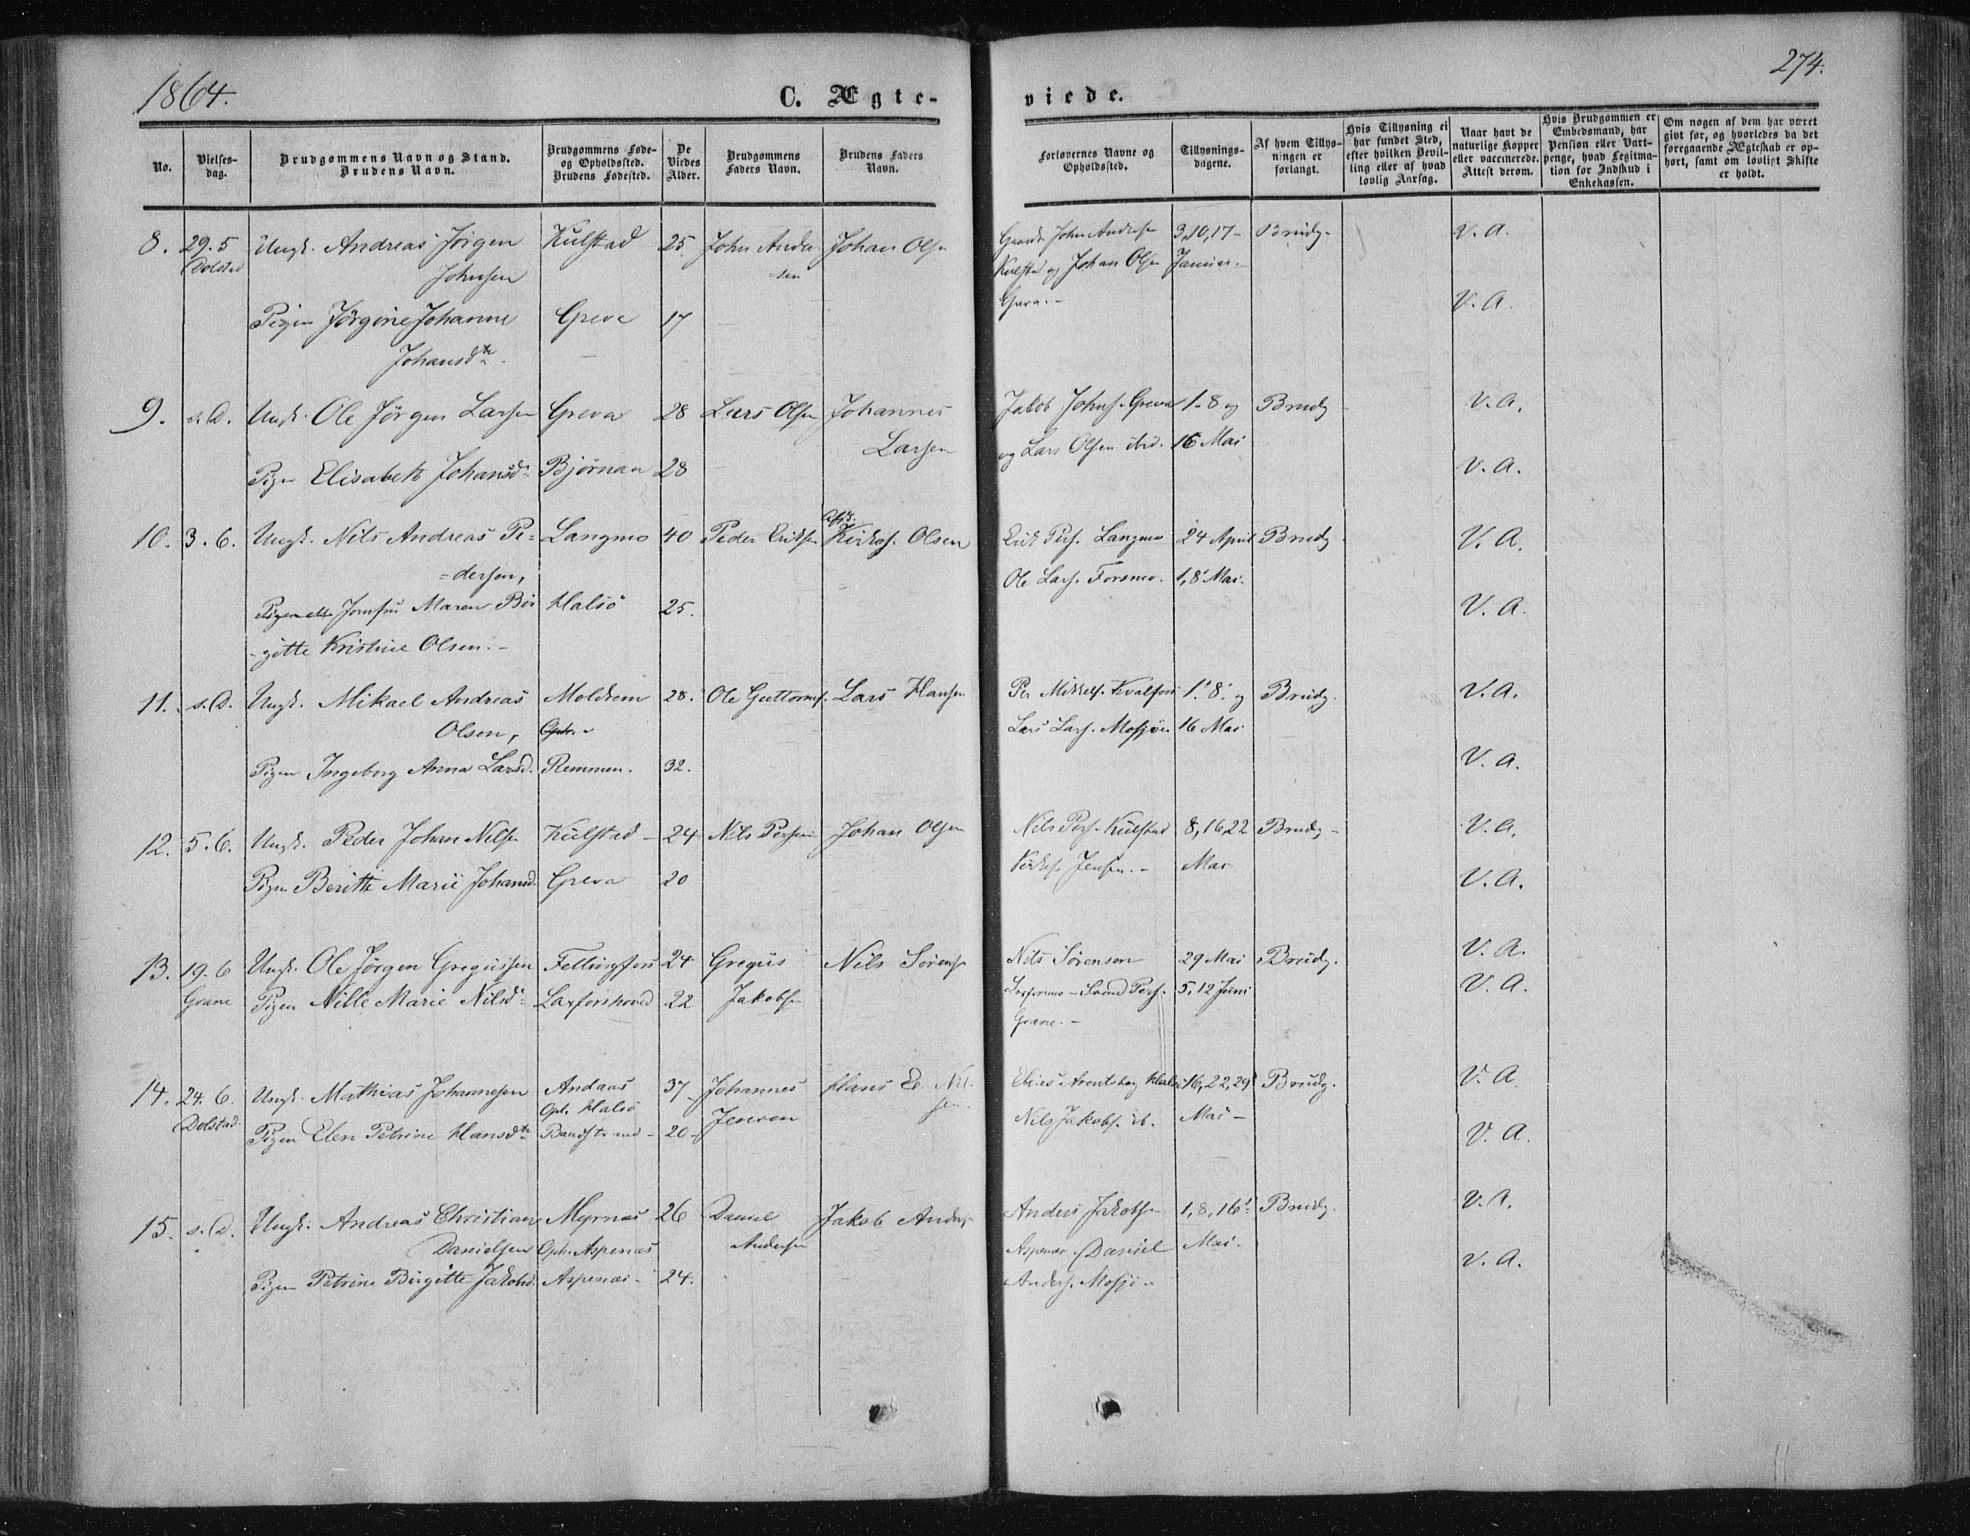 1864.
C. Ægte-
viede.
274.
No.
Vielses-
dag.
Brudgommens Navn og Stand.
Brudens Navn.
Brudgommens Føde-
og Opholdssted.
Brudens Fødested.
De
Viedes
Alder.
Brudgommens
Faders Navn.
Brudens Faders
Navn.
Forlovernes Navne og
Opholdssted.
Tillysnings-
dagene.
Af hvem Tillys-
ningen er
forlangt.
Hvis Tillysning ei
har fundet Sted,
efter hvilken Bevil-
ling eller af hvad
lovlig Aarsag.
Naar havt de
naturlige Kopper
eller vaccinerede.
Attest derom.
Hvis Brudgommen er
Embedsmand, har
Pension eller Vart-
penge, hvad Legitima-
tion for Indskud i
Enkekassen.
Om nogen af dem har været
givt før, og hvorledes da det
foregaaende Ægteskab er op-
hørt, samt om lovligt Skifte
er holdt.
8. 29.5 Ungk. Andreas Jørgen Kulstad 25. John Ander Johan Olsen
Dolstad Johnsen sen
Pigen Jørgine Johanne Greva 17
Johansdtr.
John Andersen 3, 10, 17- Brudg. V. A.
Kulstad og Johan Olsen Januar.
Greva.- V. A.
9. s. D. Ungk. Ole Jørgen Larsen Greva 28 Lars Olsen Johannes
Larsen
Pigen Elisabeth Johansd. Bjørnaa 28
Jakob Johns. Greva 1-8 og Brudg V. A.
og Lars Olsen ibid. 16 Mai
V. A.
10. 3. 6. Ungk. Nils Andreas Pe- Langmo 40 Peder Eriksen Kirks. Olsen
=dersen,
Jomfru Maren Bir Halsø 25.
-gitte Kristine Olsen.-
Erik Pers. Langmo 24 April Brudg. V. A.
Ole Lars. Forsmo. 1, 8 Mai.
V. A.
11. s. D. Ungk. Mikael Andreas Moldrem 28. Ole Guttorms. Lars Hansen
Olsen, Oph.
Pigen Ingeborg Anna Larsd. Remmen. 32.
Per Mikkels. Kvalfors 1. 8. og Brudg. V. A.
Lars Lars. Mosjøen 16 Mai
V. A.
12. 5. 6. Ungk. Peder Johan Nilsen Kulstad - 24 Nils Persen Johan Olsen
Pigen Berith Marie Johansd. Greva 20
Nils Pers. Kulstad 8, 16, 22 Brudg - V. A.
Kirks. Jensen.- Mai
V. A.
13. 19. 6 Ungk. Ole Jørgen Gregussen Fellingfors 24 Gregus Nils Sørens.
Grane Pigen Nille Marie Nilsd. Laxforshoved 22 Jakobsen
Nils Sørensen 29 Mai Brudg. V. A.
Laxforsmo - Svend Pers. 5, 12 Juni V. A.
Grane.-
14. 24. 6. Ungk. Mathias Johannesen Andaas 37 Johannes Hans E. Nil-
Dolstad. Oph. Halsø sen.
Pigen Elen Petrine Hansdtr Baadstrand - 20 - Jensen
Elias Arontsberg Halsø 16, 22, 29 Brudg. V. A
Nils Jakobs. ib. Mai -
V. A.
15. s. D. Ungk. Andreas Christian Myrnes 26 Daniel Jakob Anders.
Danielsen Oph. Aspenæs Andersen
Pigen Petrine Birgitte Jakobsd. Aspenæs - 24.
Anders Jakobsen 1, 8, 16 Brudg. V. A.
Aspenæs. Daniel Mai.
Anders. Mosjø - V. A.